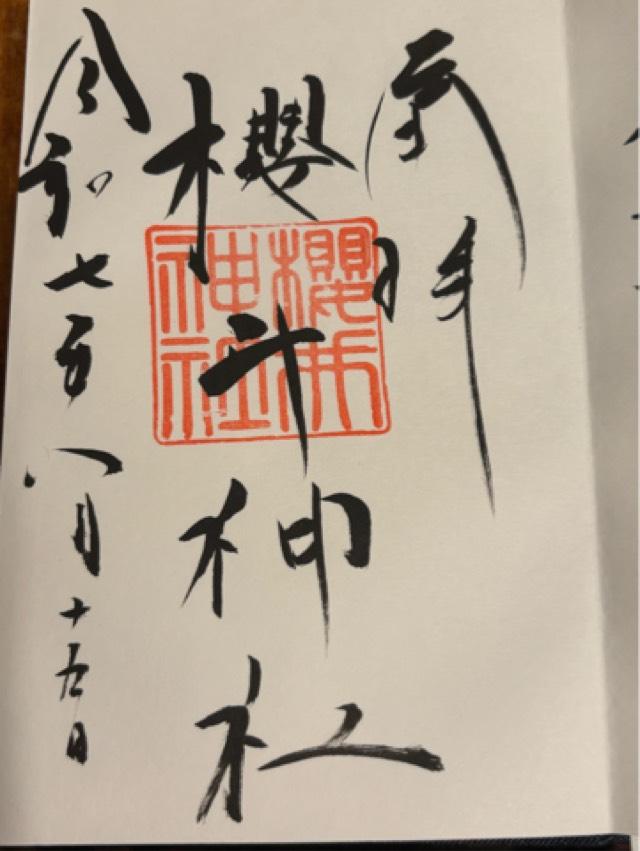 奉拝
櫻井神社
櫻井
神社
令和七年八月十五日